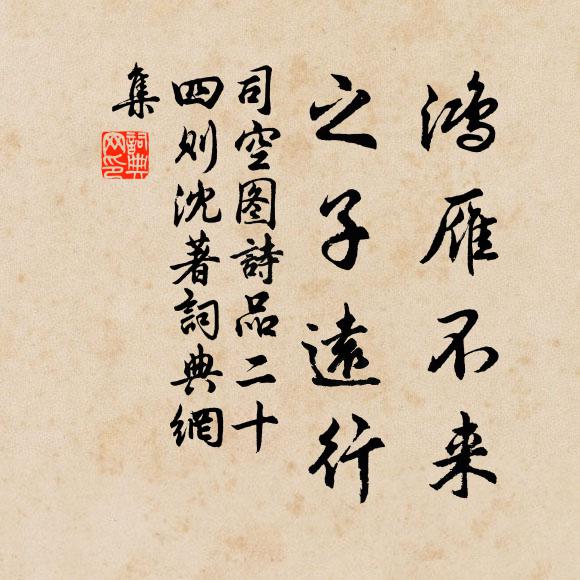 鸿雁不来
之子遠行
司空图詩品二十
四则沈著詞典網
集
詞典
网印